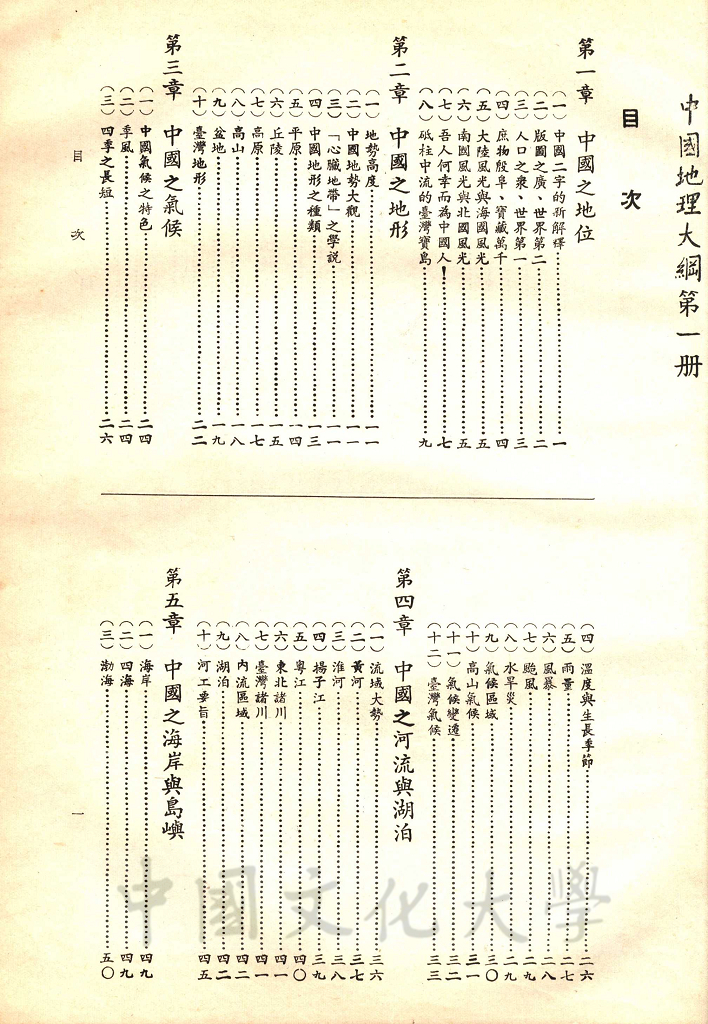 中國地理大綱第一册
目次
第一章 中國之地位
(一)中國二字的新解釋……一
(二)版圖之廣、世界第二……二
(三)人口之衆、世界第一……三
(四)庶物殷阜、寶藏萬千……四
(五)大陸風光與海國風光……五
(六)南國風光與北國風光……五
(七)吾人何幸而為中國人!……七
(八)砥柱中流的臺灣寶島……九
第二章 中國之地形
(一)地勢高度……一一
(二)中國地勢大觀……一一
(三)「心臟地帶」之學説……一一
(四)中國地形之種類……一三
(五)平原……一四
(六)丘陵……一五
(七)高原……一七
(八)高山……一八
(九)盆地……一九
(十)臺灣地形……二二
第三章 中國之氣候
(一)中國氣候之特色……二四
(二)季風……二四
(三)四季之長短……二六
(四)溫度與生長季節……二六
(五)雨量……二七
(六)風暴……二八
(七)颱風……二九
(八)水旱災……二九
(九)氣候區域……三〇
(十)高山氣候……三一
(十一)氣候變遷……三二
(十二)臺灣氣候……三三
第四章 中國之河流與湖泊
(一)流域大勢……三六
(二)黃河……三七
(三)淮河……三八
(四)揚子江……三九
(五)粵江……四〇
(六)東北諸川……四一
(七)臺灣諸川……四一
(八)內流區域……四二
(九)湖泊……四二
(十)河工要旨……四五
第五章 中國之海岸與島嶼
(一)海岸……四九
(二)四海……四九
(三)渤海……五〇
目次
一
中國文化大學